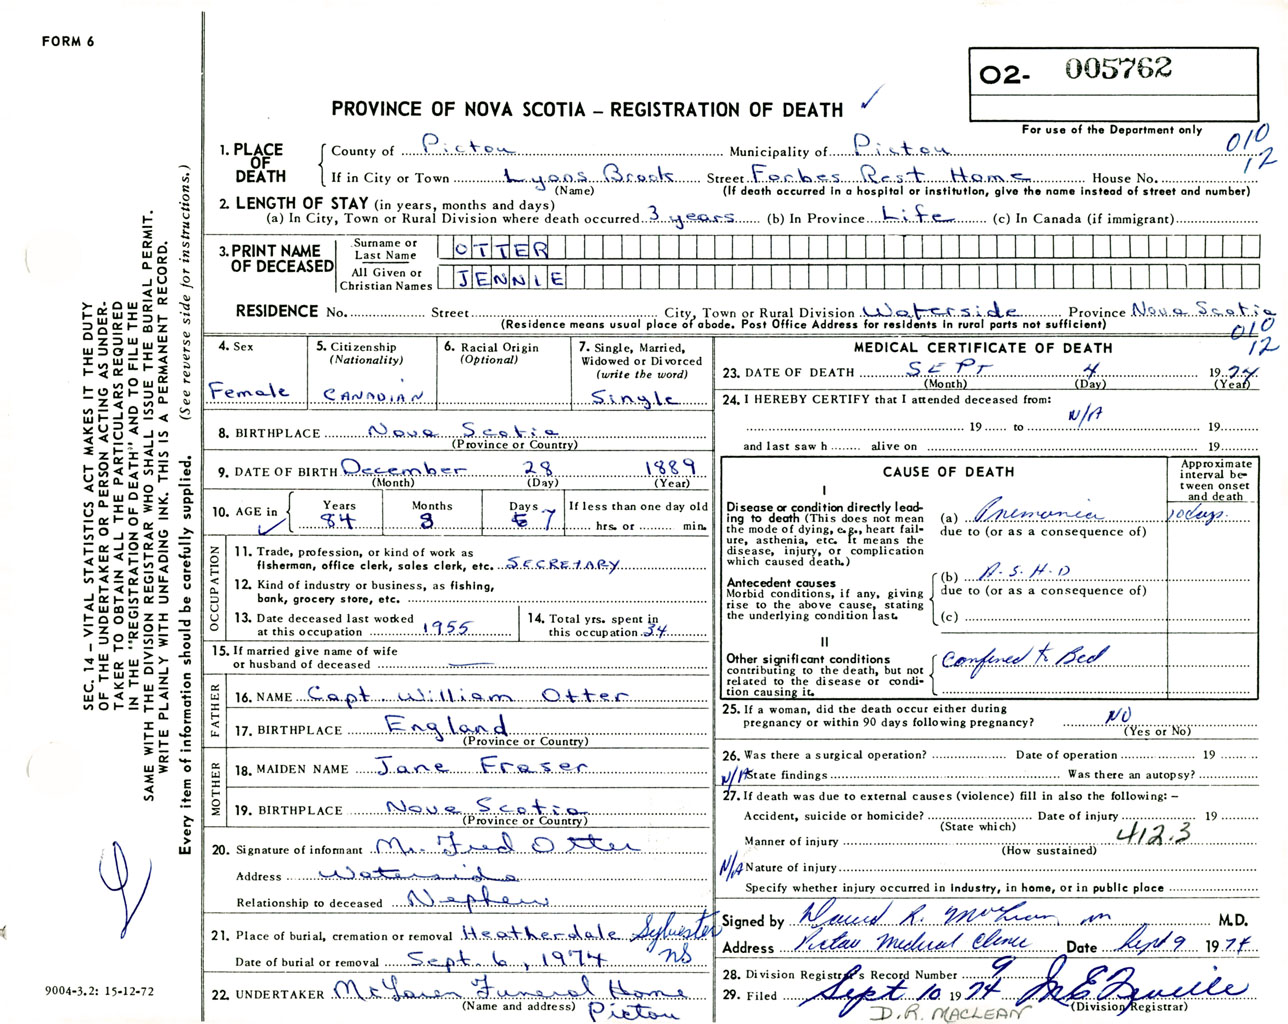 FORM 6
O2- 005762
PROVINCE OF NOVA SCOTIA – REGISTRATION OF DEATH ✓
For use of the Department only
010
12
1. PLACE OF DEATH
County of Pictou Municipality of Pictou
If in City or Town Lyons Brook Street Forbes Rest Home House No.
(Name) (If death occurred in a hospital or institution, give the name instead of street and number)
2. LENGTH OF STAY (in years, months and days)
(a) In City, Town or Rural Division where death occurred 3 years (b) In Province Life (c) In Canada (if immigrant)
3. PRINT NAME OF DECEASED
Surname or Last Name OTTER
All Given or Christian Names JENNIE
RESIDENCE No. Street City, Town or Rural Division Waterside Province Nova Scotia
(Residence means usual place of abode. Post Office Address for residents in rural parts not sufficient)
010
12
4. Sex
Female
5. Citizenship
(Nationality)
CANADIAN
6. Racial Origin
(Optional)
7. Single, Married,
Widowed or Divorced
(write the word)
Single
8. BIRTHPLACE Nova Scotia
(Province or Country)
9. DATE OF BIRTH December 28 1889
(Month) (Day) (Year)
10. AGE in ✓
Years Months Days If less than one day old
84 8 7 hrs. or min.
OCCUPATION
11. Trade, profession, or kind of work as
fisherman, office clerk, sales clerk, etc. SECRETARY
12. Kind of industry or business, as fishing,
bank, grocery store, etc.
13. Date deceased last worked
at this occupation 1955
14. Total yrs. spent in
this occupation 34
15. If married give name of wife
or husband of deceased —
FATHER
16. NAME Capt. William Otter
17. BIRTHPLACE England
(Province or Country)
MOTHER
18. MAIDEN NAME Jane Fraser
19. BIRTHPLACE Nova Scotia
(Province or Country)
20. Signature of informant Mr. Fred Otter
Address Waterside
Relationship to deceased Nephew
21. Place of burial, cremation or removal Heatherdale Sylvester
Date of burial or removal Sept. 6, 1974 NS
22. UNDERTAKER McLaren Funeral Home
(Name and address) Pictou
MEDICAL CERTIFICATE OF DEATH
23. DATE OF DEATH SEPT 4 1974
(Month) (Day) (Year)
24. I HEREBY CERTIFY that I attended deceased from:
N/A
19 to 19
and last saw h alive on 19
CAUSE OF DEATH
Approximate interval between onset and death
I
Disease or condition directly leading to death (This does not mean the mode of dying, e.g., heart failure, asthenia, etc. It means the disease, injury, or complication which caused death.)
(a) Pneumonia 10 days
due to (or as a consequence of)
Antecedent causes
Morbid conditions, if any, giving rise to the above cause, stating the underlying condition last.
(b) A.S.H.D
due to (or as a consequence of)
(c)
II
Other significant conditions
contributing to the death, but not related to the disease or condition causing it.
Confined to Bed
25. If a woman, did the death occur either during
pregnancy or within 90 days following pregnancy? NO
(Yes or No)
26. Was there a surgical operation? Date of operation 19
N/A State findings Was there an autopsy?
27. If death was due to external causes (violence) fill in also the following: –
Accident, suicide or homicide? Date of injury 19
(State which)
412.3
Manner of injury
(How sustained)
N/A Nature of injury
Specify whether injury occurred in industry, in home, or in public place
Signed by David R. McLean M.D.
Address Pictou Medical Clinic Date Sept 9 1974
28. Division Registrar's Record Number 9
29. Filed Sept 10 1974
(Division Registrar)
D.R. MACLEAN
SEC. 14 – VITAL STATISTICS ACT MAKES IT THE DUTY
OF THE UNDERTAKER OR PERSON ACTING AS UNDER-
TAKER TO OBTAIN ALL THE PARTICULARS REQUIRED
IN THE "REGISTRATION OF DEATH" AND TO FILE THE
SAME WITH THE DIVISION REGISTRAR WHO SHALL ISSUE THE BURIAL PERMIT.
WRITE PLAINLY WITH UNFADING INK. THIS IS A PERMANENT RECORD.
Every item of information should be carefully supplied. (See reverse side for instructions.)
9004-3.2: 15-12-72